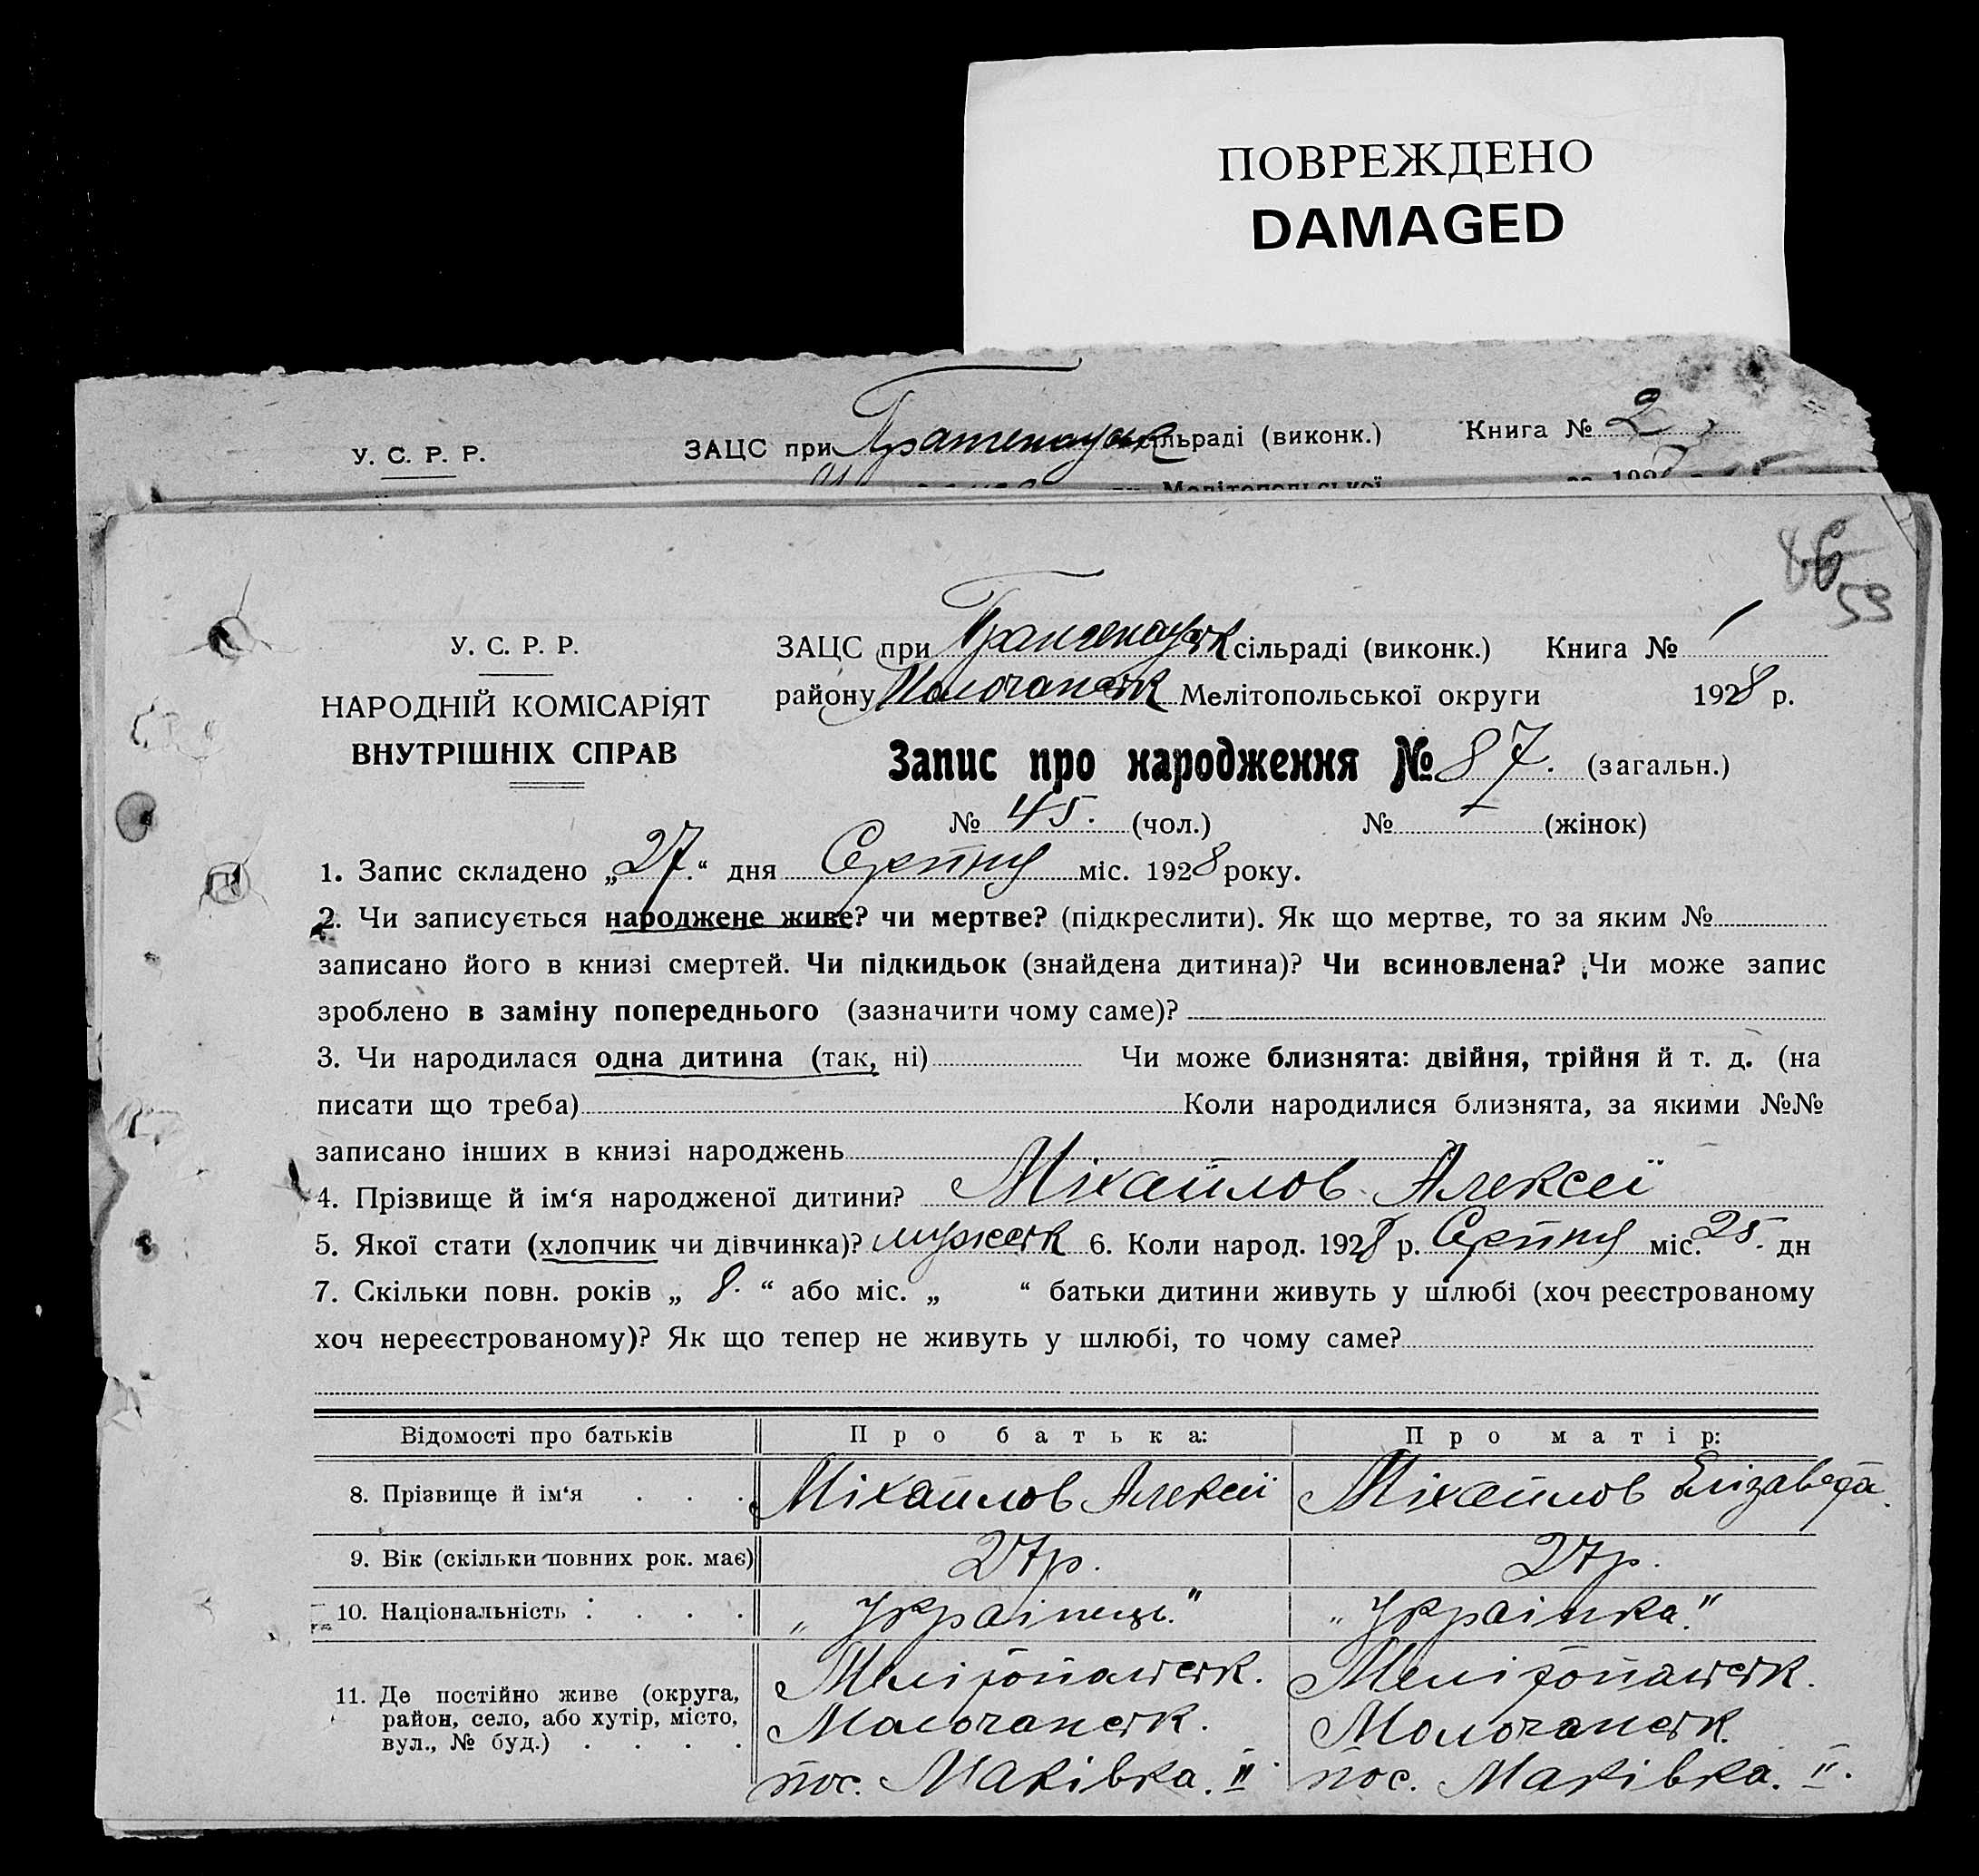 ПОВРЕЖДЕНО
DAMAGED
У. С. Р. Р. ЗАЦС при сільраді (виконк.) Книга № 2
Мелітопольської
86
59
У. С. Р. Р.
НАРОДНІЙ КОМІСАРІЯТ
ВНУТРІШНІХ СПРАВ
ЗАЦС при сільраді (виконк.) Книга № 1
району Молочанськ Мелітопольської округи 1928 р.
Запис про народження № 87. (загальн.)
№ 45. (чол.) № (жінок)
1. Запис складено „27.“ дня Серпня міс. 1928 року.
2. Чи записується народжене живе? чи мертве? (підкреслити). Як що мертве, то за яким №
записано його в книзі смертей. Чи підкидьок (знайдена дитина)? Чи всиновлена? Чи може запис
зроблено в заміну попереднього (зазначити чому саме)?
3. Чи народилася одна дитина (так, ні) Чи може близнята: двійня, трійня й т. д. (на
писати що треба) Коли народилися близнята, за якими №№
записано інших в книзі народжень
4. Прізвище й ім‘я народженої дитини? Міхайлов Алексеї
5. Якої стати (хлопчик чи дівчинка)? мужеськ 6. Коли народ. 1928 р. Серпня міс. 25. дн
7. Скільки повн. років „ 8. “ або міс. „ “ батьки дитини живуть у шлюбі (хоч реєстрованому
хоч нереєстрованому)? Як що тепер не живуть у шлюбі, то чому саме?
Відомості про батьків П р о б а т ь к а: П р о м а т і р:
8. Прізвище й ім‘я . . . Міхайлов Алексеї Міхайлов Елізавета.
9. Вік (скільки повних рок. має) 27р. 27р.
10. Національність . . . . „Українець." „Українка."
11. Де постійно живе (округа,
район, село, або хутір, місто,
вул., № буд.) . . . .
Мелітопальськ.
Молочанськ.
пос. Маківка. II.
Мелітопальськ.
Молочанськ.
пос. Маківка. II.